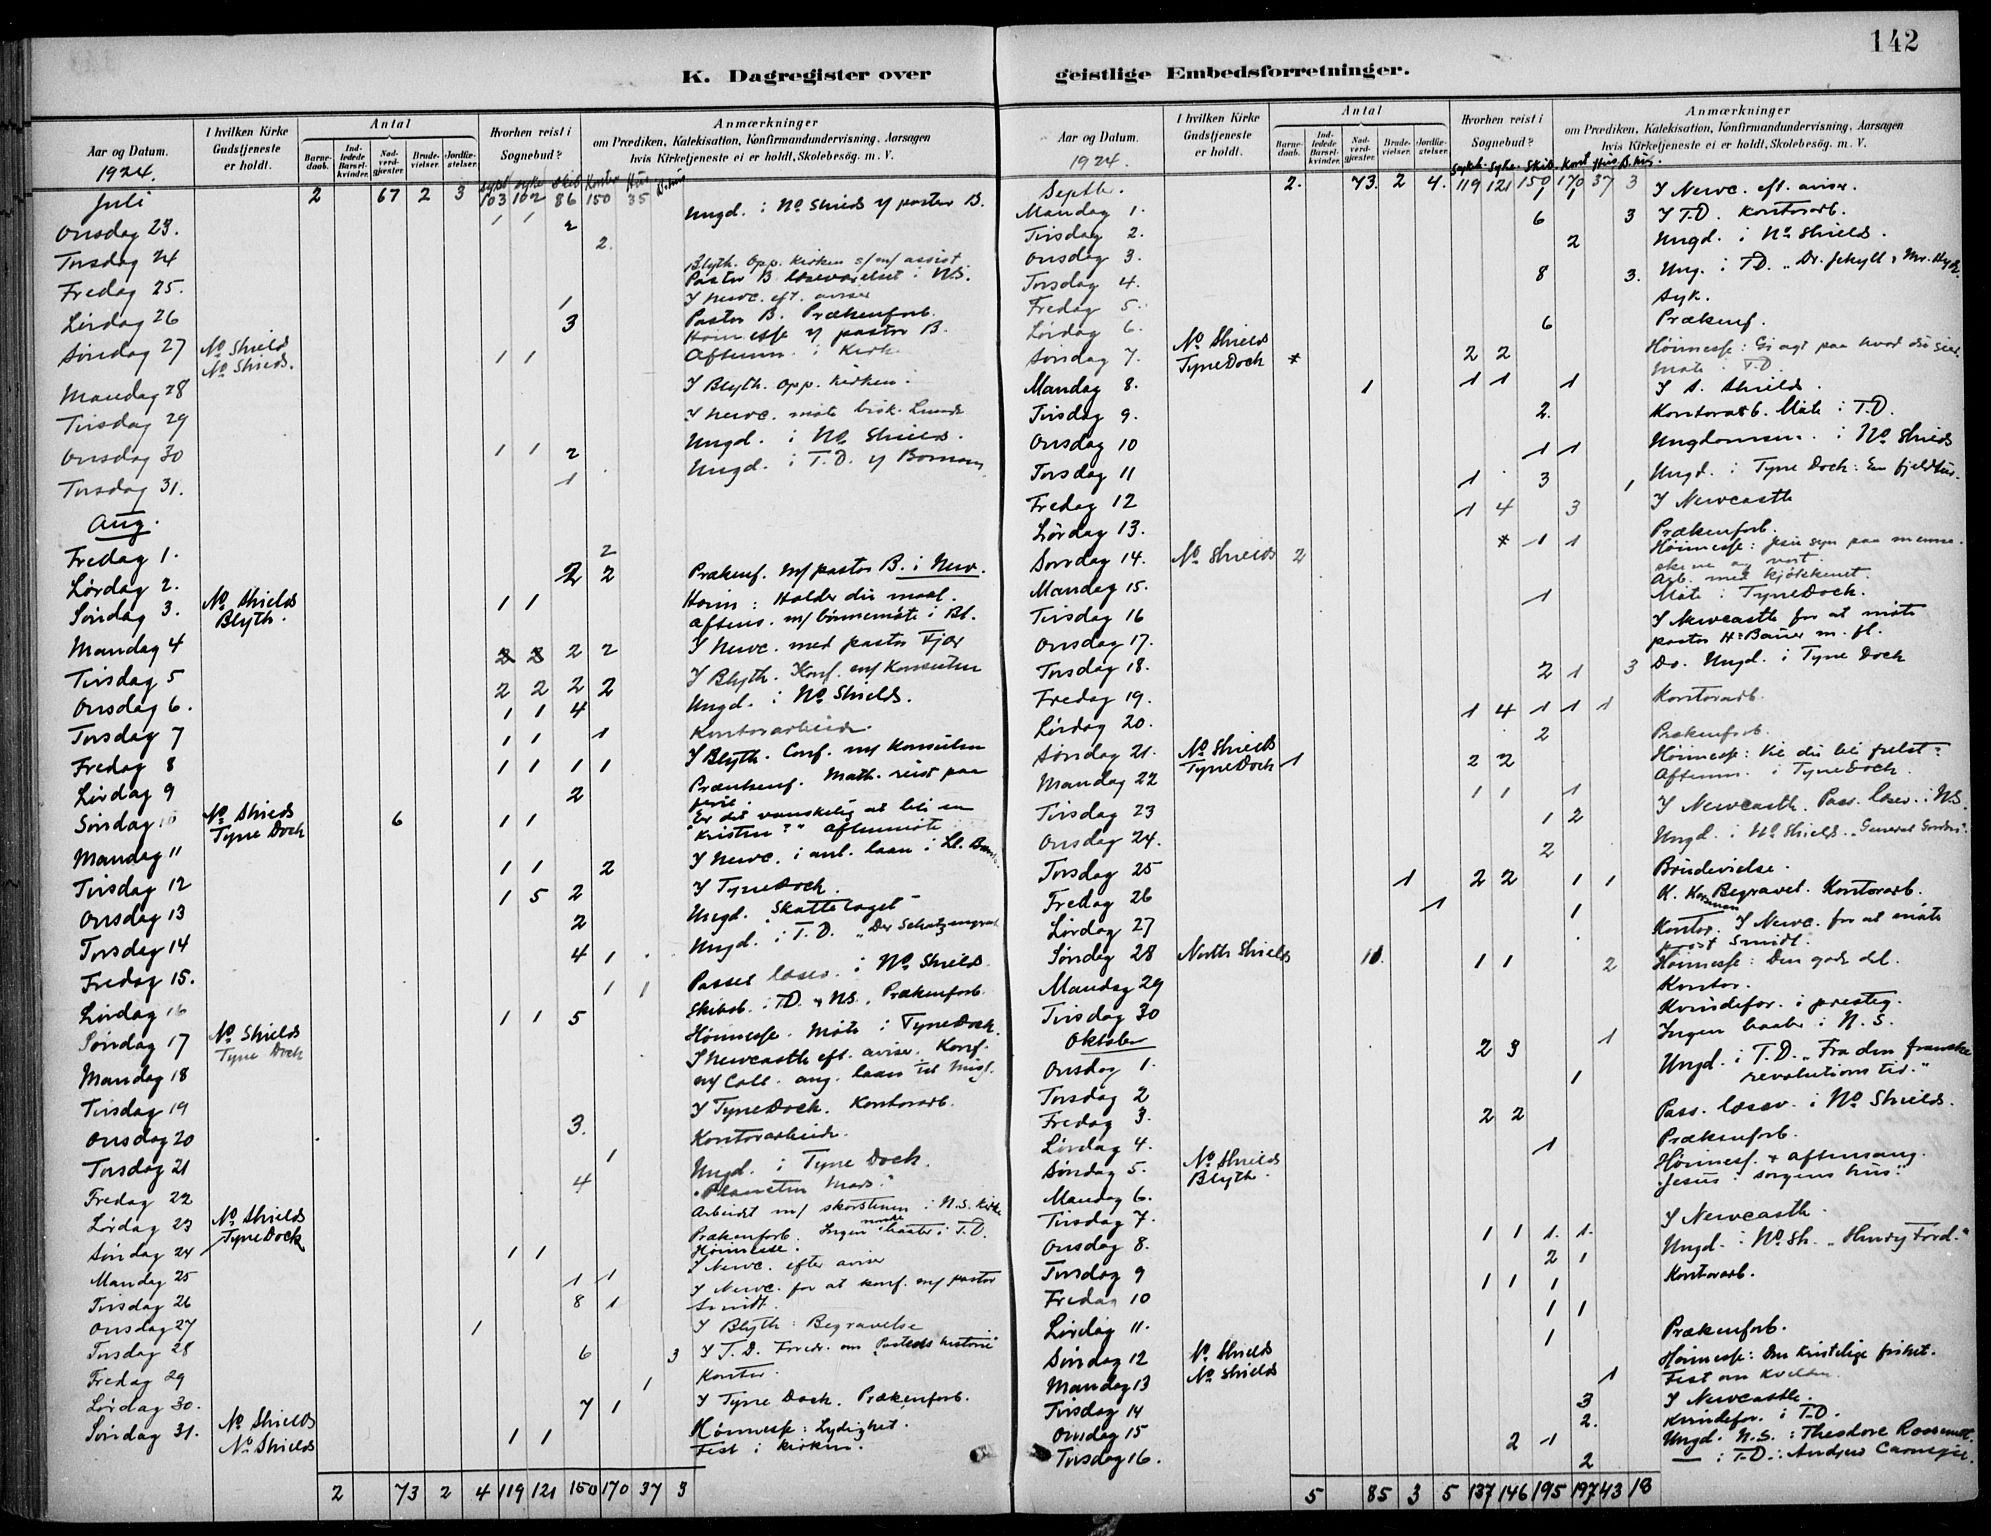 142
K. Dagregister over geistlige Embedsforretninger.
Aar og Datum.
1924.
I hvilken Kirke Gudstjeneste er holdt.
Antal
Barnedaab.
Indledede Barselkvinder.
Nadverdgjester.
Brudevielser.
Jordfæstelser.
Hvorhen reist i Sognebud?
Anmærkninger
om Prædiken, Katekisation, Konfirmandundervisning, Aarsagen
hvis Kirketjeneste ei er holdt, Skolebesøg. m. V.
Juli 2 67 2 3 103 102 86 150 35
Onsdag 23. 1 1 2 Ungd. i No Shields v/ pastor B.
Torsdag 24 2.
Fredag 25. Blyth. Opp. kirken s/m/ assist.
Pastor B. læseværelset i N.S.
Lørdag 26 1 I Newc. eft. aviser
3 Pastor B. Prækenforb.
Søndag 27 No Shields Høimesse v/ pastor B.
No Shields. 1 1 Aftenm. i Kirke
Mandag 28 I Blyth. Opp. kirken.
Tirsdag 29 I Newc. møte bisk. Lunde
Onsdag 30 1 1 2 Ungd. i No Shields.
Torsdag 31. 1 Ungd. i T.D. v/ Borman
Aug.
Fredag 1. 2
Lørdag 2. 2 2 Prækenf. m/ pastor B. i Newc.
Søndag 3. No Shields 1 1 Høim: Holder din maal.
Blyth. Aftens. m/ bønnemøte i Bl.
Mandag 4 2 2 2 2 I Newc. med pastor Fjær
Tirsdag 5 2 2 2 2 I Blyth. Konf. m/ Konsulen
Onsdag 6. 1 1 4 Ungd. i No Shields.
Torsdag 7 1 1 1 Kontorarbeide
Fredag 8 1 1 1 1 I Blyth. Conf. m/ Konsulen
Lørdag 9 2 Prækenf. Math. reist paa
ferie.
Søndag 10 No Shields 6 1 1 Er det vanskelig at bli en
Tyne Dock "kristen?" Aftenmøte
Mandag 11 1 1 2 I Newc. i anl. laan i Ll. Bank.
Tirsdag 12 1 5 2 I Tyne Dock.
Onsdag 13 2 Ungd. Skattelaget
Torsdag 14 4 1 Ungd. i T.D. "Der Schatzengræb
Fredag 15. 1 1 Passet læsev. i No Shields.
Lørdag 16 1 1 5 Skibsb. i T.D. & N.S. Prækenforb.
Søndag 17 No Shields Høimesse. Møte i Tyne Dock.
Tyne Dock
Mandag 18 I Newcastle eft. aviser. Konf.
m/ Call. ang. laan til Miss.
Tirsdag 19 3. I Tyne Dock. Kontorarb.
Onsdag 20 1 Kontorarbeide.
Torsdag 21 4 Ungd. i Tyne Dock.
"Planeten Mars."
Fredag 22 Arbeidet m/ skorstenen i N.S. Kirke
Lørdag 23 No Shields Prækenforb. Ingen norske baater i T.D.
Søndag 24 Tyne Dock 1 1 Høimesse.
Mandag 25 1 1 I Newc. efter aviser
Tirsdag 26 8 1 I Newc. for at konf. m/ pastor
Smidt.
Onsdag 27 1 I Blyth: Begravelse
Torsdag 28 6 3 I T.D. Foredr. om "Postens historie"
Fredag 29 1 Kontor.
Lørdag 30. 7 1 I Tyne Dock. Prækenforb.
Søndag 31. No Shields 1 1 Høimesse: Lydighet.
No Shields Fest i kirken.
2 73 2 4 119 121 150 170 37 3
Aar og Datum.
1924.
I hvilken Kirke Gudstjeneste er holdt.
Antal
Barnedaab.
Indledede Barselkvinder.
Nadverdgjester.
Brudevielser.
Jordfæstelser.
Hvorhen reist i Sognebud?
Anmærkninger
om Prædiken, Katekisation, Konfirmandundervisning, Aarsagen
hvis Kirketjeneste ei er holdt, Skolebesøg. m. V.
Septbr. 2. 73. 2 4. 119 121 150 170 37 3
Mandag 1. 1 1 I Newc. eft. aviser.
Tirsdag 2. 6 3 I T.D. Kontorarb.
Onsdag 3. 2 Ungd. i No Shields.
Torsdag 4. 8 3. Ung. i T.D. "Dr. Jekyll & Mr. Hyde.
Fredag 5. Syk.
Lørdag 6. 6 Prækenf.
Søndag 7. No Shields 2 2 Høimesse: Gi agt paa hvad du sier.
Tyne Dock Møte T.D.
Mandag 8. 1 1 1 1 I S. Shields.
Tirsdag 9. 2. Kontorarb. Møte i T.D.
Onsdag 10 1 1 Ungdommen. i No Shields
Torsdag 11 1 3 1 Ungd. i Tyne Dock: En fjeldtur.
Fredag 12 1 4 3 I Newcastle
Lørdag 13. 1 1 Prækenforb.
Søndag 14. No Shields 2 Høimesse: Jesu syn paa menneskene og vort.
Mandag 15. Arb. med kjøkkenet.
Tirsdag 16 1 Møte i Tyne Dock.
Onsdag 17. I Newcastle for at møte
pastor H. Bauer m. fl.
Torsdag 18. 2 1 3 Do. Ungd. i Tyne Dock
Fredag 19. 1 4 1 1 1 Kontorarb.
Lørdag 20. 2 Prækenforb.
Søndag 21. No Shields 1 2 2 Høimesse: Vil du bli frelst?
Tyne Dock Aftenm. i Tyne Dock.
Mandag 22 1 1 1
Tirsdag 23 1 2 I Newcastle. Pass. læsev. i N.S.
Onsdag 24. 2 Ungd. i No Shields. "General Gordon".
Torsdag 25 1 2 2 1 1 Brudevielse.
Fredag 26 1 1 Begravel. Kontorarb.
Lørdag 27 Kontor. I Newc. for at møte
prost Smidt.
Søndag 28 North Shields 10. 1 1 2 Høimesse: Den gode del.
Mandag 29 Kontor.
Tirsdag 30 Kvindefor. i presteg.
Oktober 2 3 1 Ingen baater i N.S.
Onsdag 1. 1 Ungd. i T.D. "Fra den franske
revolutions tid."
Torsdag 2
Fredag 3. 2 2 Pass. læsev. i No Shields.
Lørdag 4. 1 Prækenforb.
Søndag 5. No Shields Høimesse. + Aftensang.
Blyth. "Jesus i sorgens hus"
Mandag 6.
Tirsdag 7. 1 1 1. 1. I Newcastle
Onsdag 8. 2 1 Ungd. i No Sh. "Henry Ford."
Torsdag 9 1 1 1 Kontorarb.
Fredag 10 1 1
Lørdag 11. 1 Prækenforb.
Søndag 12 No Shields Høimesse: Den kristelige frihet.
Mandag 13 No Shields 1 Fest om kvelden.
Tirsdag 14 3 I Newcastle.
2. Kvindefor. i T.D.
Onsdag 15 2 1 Ungd. N.S.: Theodore Roosevelt.
Torsdag 16. 2 — : T.D.: Andrew Carnegie.
5 85 3 5 137 146 195 197 43 18